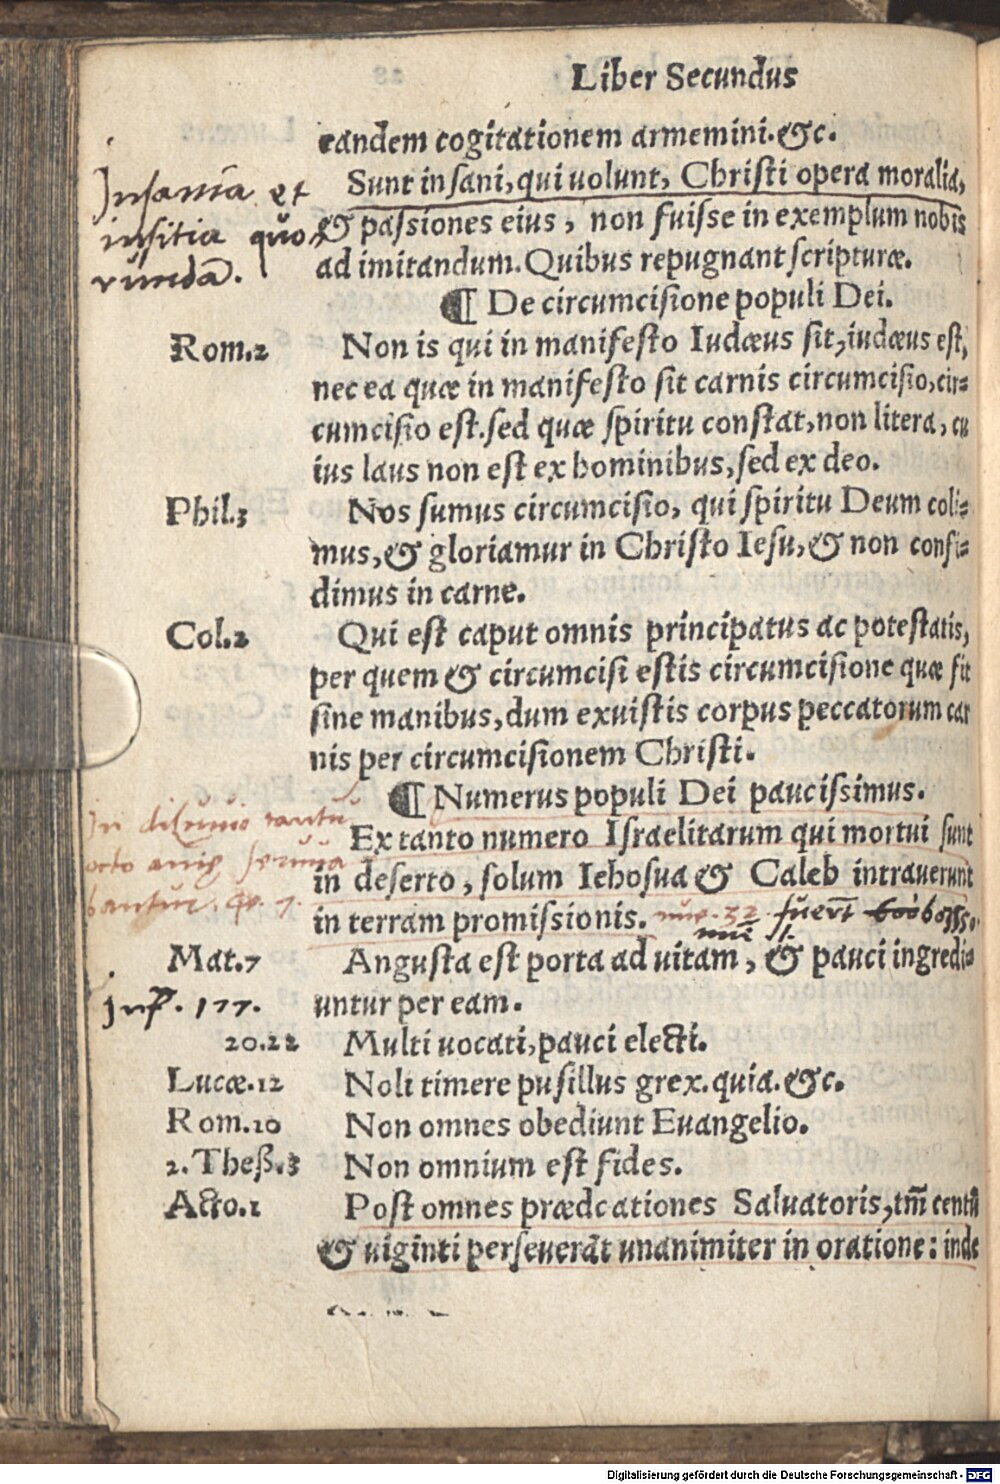 Liber Secundus
eandem cogitationem armemini.&c.
Insania et
Sunt insani, qui uolunt, Christi opera moralia,
insitia quo
& passiones eius, non fuisse in exemplum nobis
ad imitandum. Quibus repugnant scripturæ.
¶ De circumcisione populi Dei.
Rom.2
Non is qui in manifesto Iudæus sit, iudæus est,
nec ea quæ in manifesto sit carnis circumcisio, cir=
cumcisio est. sed quæ spiritu constat, non litera, cu
ius laus non est ex hominibus, sed ex deo.
Phil.3
Nos sumus circumcisio, qui spiritu Deum coli=
mus, & gloriamur in Christo Iesu, & non confi=
dimus in carne.
Col.2
Qui est caput omnis principatus ac potestatis,
per quem & circumcisi estis circumcisione quæ fit
sine manibus, dum exuistis corpus peccatorum car
nis per circumcisionem Christi.
¶ Numerus populi Dei paucissimus.
In diluuio tantū
Ex tanto numero Israelitarum qui mortui sunt
octo
in deserto, solum Iehosua & Caleb intrauerunt
bantur.
in terram promissionis. nue. 32 fuerūt
Mat.7
Angusta est porta ad uitam, & pauci ingredi=
Inf. 177.
untur per eam.
20.22
Multi uocati, pauci electi.
Lucæ.12
Noli timere pusillus grex. quia.&c.
Rom.10
Non omnes obediunt Euangelio.
2.Theß.3
Non omnium est fides.
Acto.1
Post omnes prædcationes Saluatoris, tm̄ centū
& uiginti perseuerāt unanimiter in oratione: inde
Digitalisierung gefördert durch die Deutsche Forschungsgemeinschaft - DFG